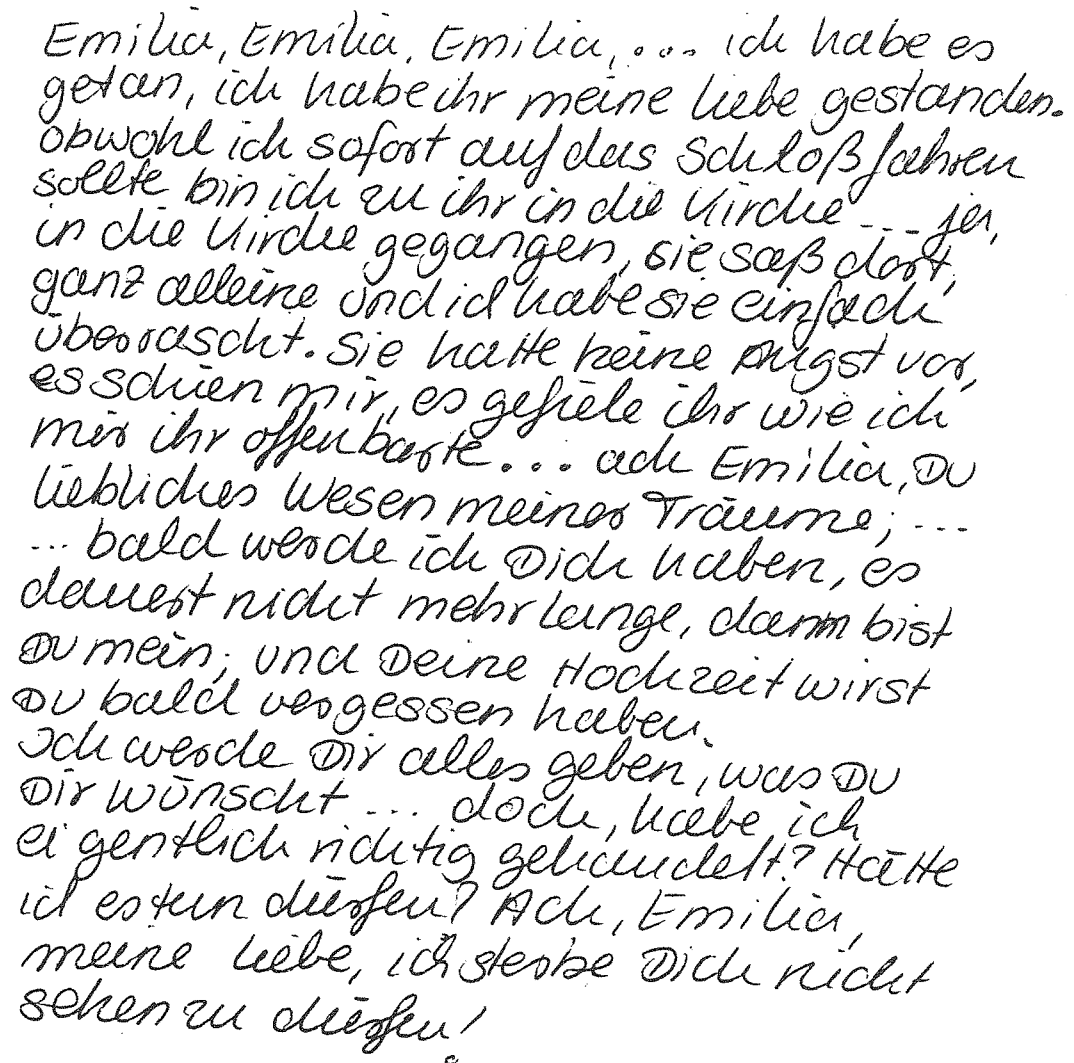 Emilia, Emilia, Emilia,... ich habe es
getan, ich habe ihr meine liebe gestanden.
Obwohl ich sofort auf das Schloß fahren
sollte bin ich zu ihr in die Kirche ... ja,
in die Kirche gegangen, sie saß dort,
ganz alleine und ich habe sie einfach
überrascht. Sie hatte keine Angst vor,
es schien mir, es gefiele ihr wie ich
mir ihr offenbarte... ach Emilia, Du
liebliches Wesen meiner Träume; ...
... bald werde ich Dich haben, es
dauert nicht mehr lange, dann bist
Du mein; und Deine Hochzeit wirst
Du bald vergessen haben.
Ich werde Dir alles geben, was Du
Dir wünscht ... doch, habe ich
eigentlich richtig gehandelt? Hätte
ich es tun dürfen? Ach, Emilia,
meine liebe, ich sterbe Dich nicht
sehen zu dürfen!